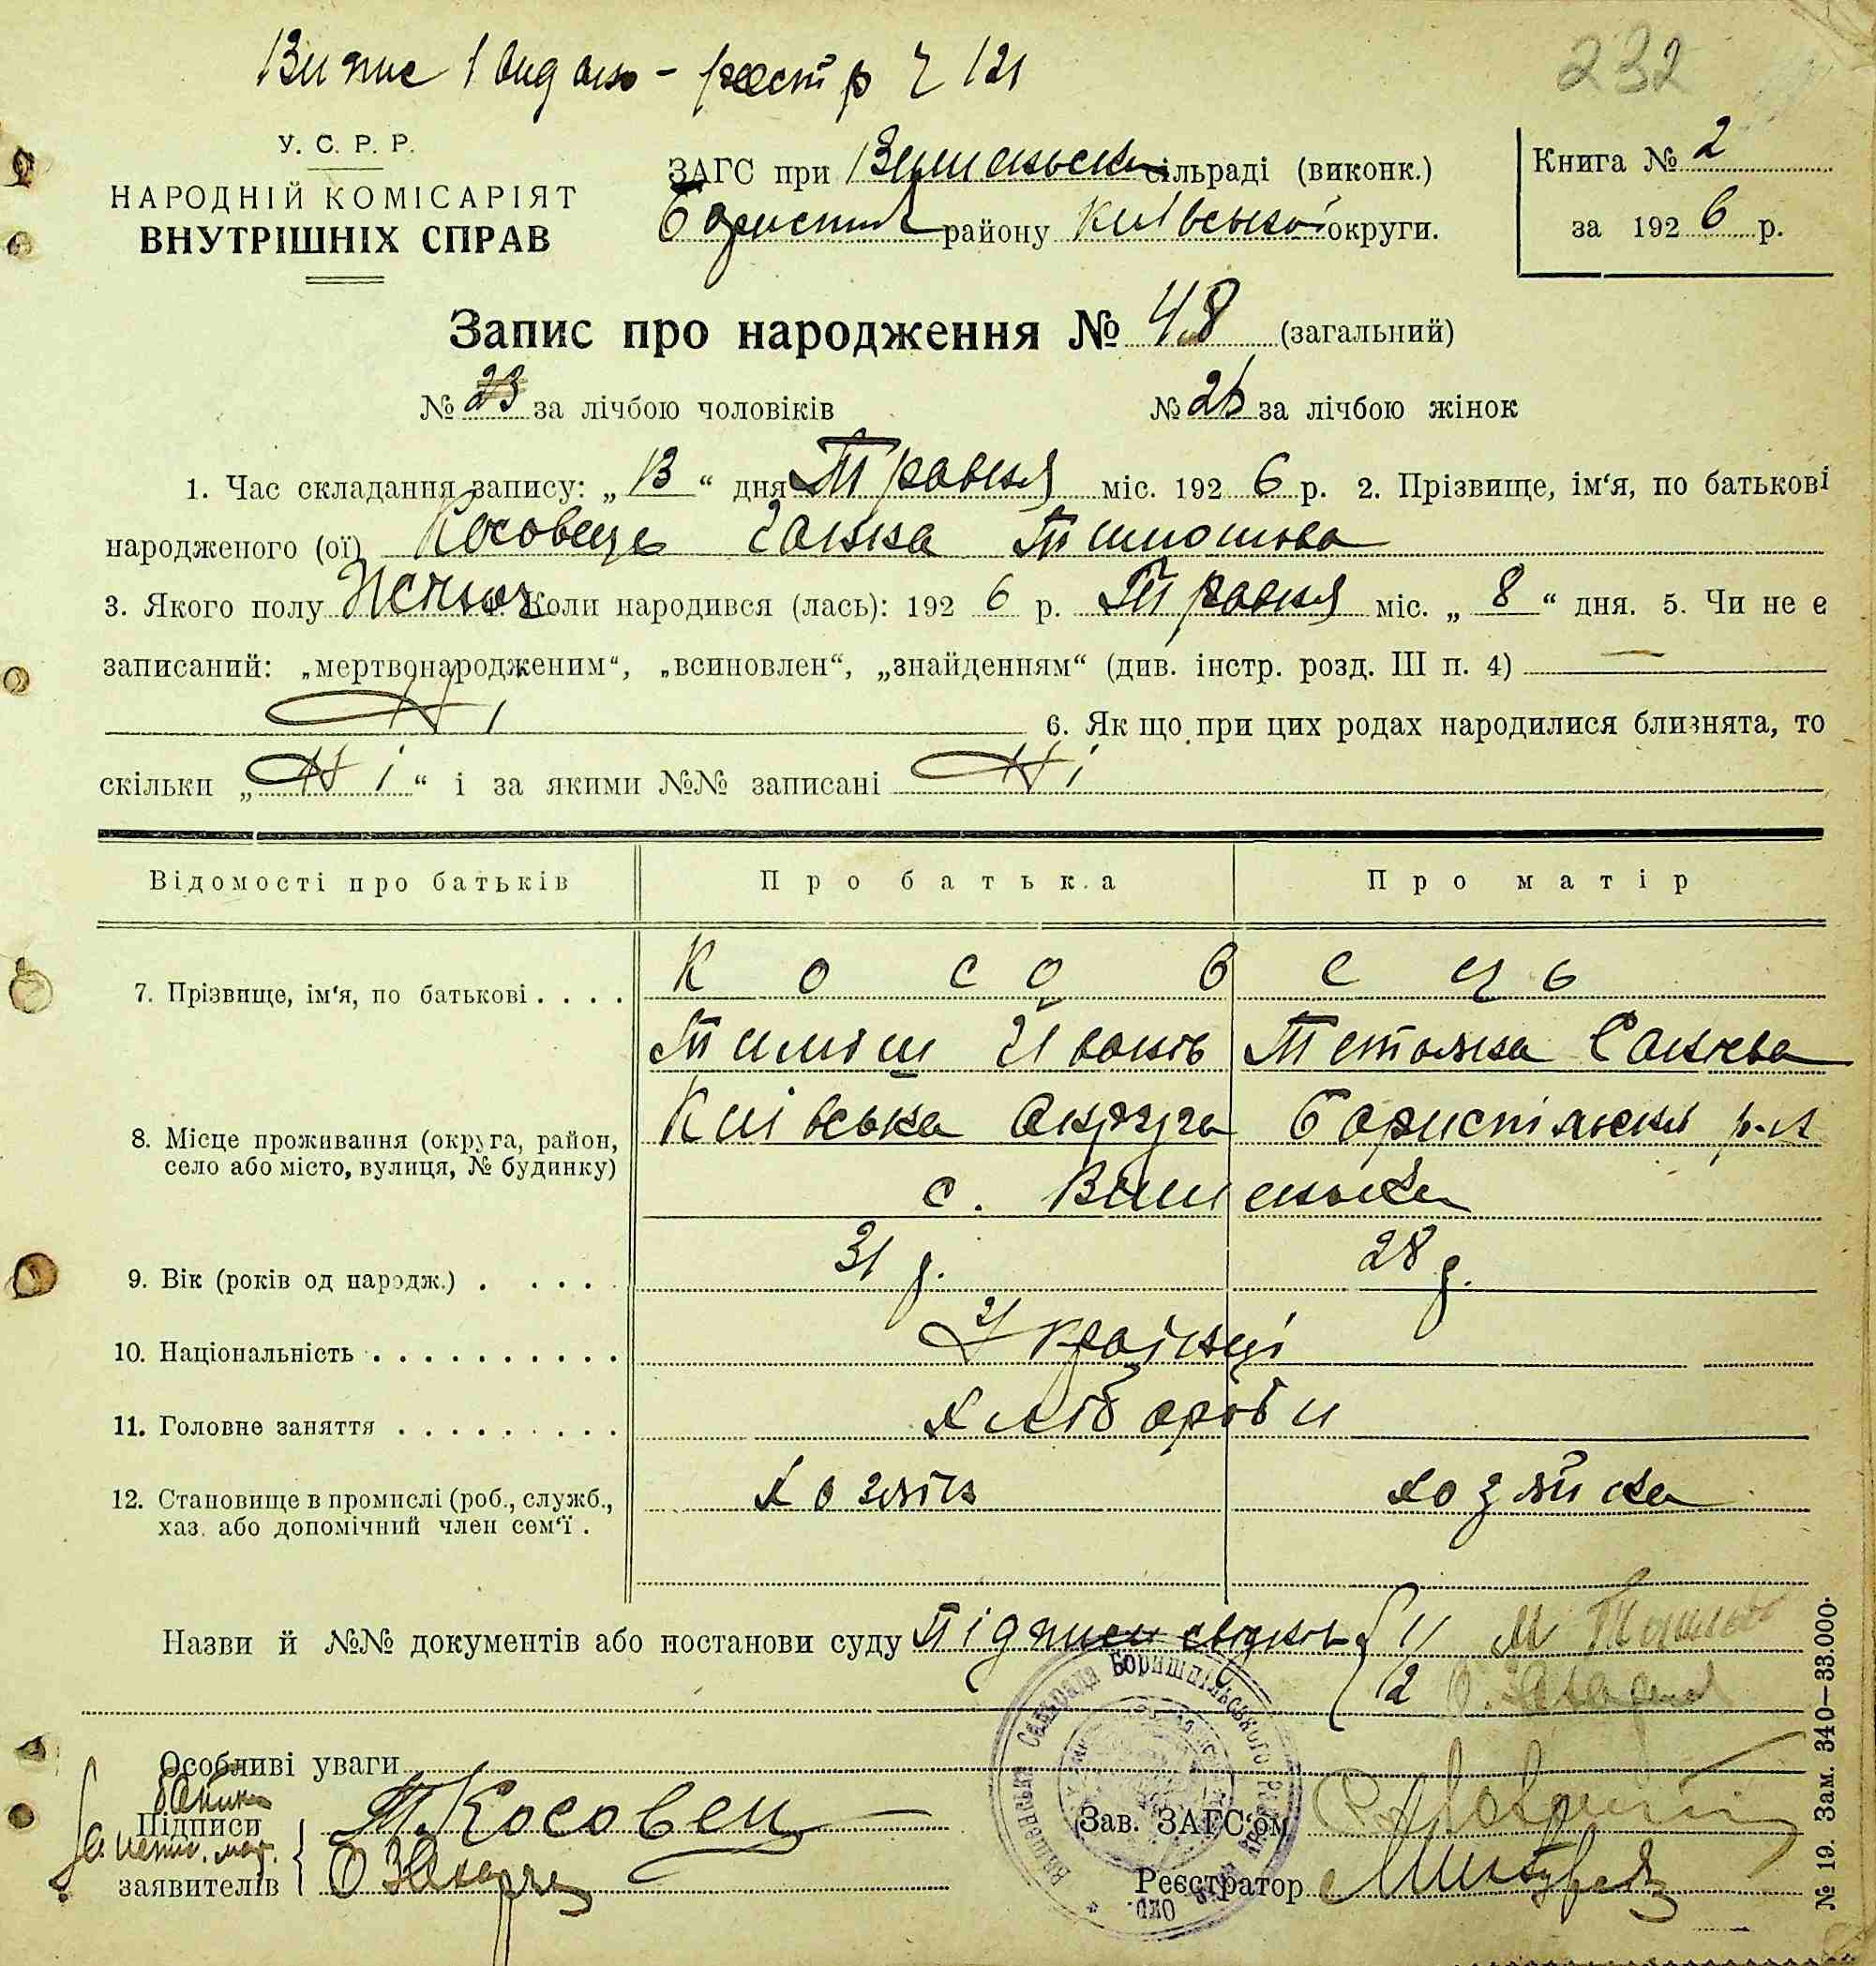 Випис 1 видано - реєстр Ч 121
232
У. С. Р. Р.
НАРОДНІЙ КОМІСАРІЯТ
ВНУТРІШНІХ СПРАВ
ЗАГС при Вишеньськи сільраді (виконк.)
Бориспіл району Київської округи.
Книга № 2
за 1926 р.
Запис про народження № 48 (загальний)
№ 23 за лічбою чоловіків № 25 за лічбою жінок
1. Час складання запису: „13“ дня Травня міс. 1926 р. 2. Прізвище, ім‘я, по батькові
народженого (ої) Косовець Ганна Тимошова
3. Якого полу Жіноч 4. Коли народився (лась): 1926 р. Травня міс. „8“ дня. 5. Чи не е
записаний: „мертвонародженим“, „всиновлен“, „знайденням“ (див. інстр. розд. III п. 4) —
Ні 6. Як що при цих родах народилися близнята, то
скільки „Ні“ і за якими №№ записані Ні
Відомості про батьків Про батька Про матір
7. Прізвище, ім‘я, по батькові . . . . Косовець
Тиміш Іванів Тетяна Санєва
8. Місце проживання (округа, район, село або місто, вулиця, № будинку) Київська округа Бориспільськ р-н
с. Вишеньки
9. Вік (років од народж.) . . . . . 31 р. 28 р.
10. Національність . . . . . . . . . . Українці
11. Головне заняття . . . . . . . . . Хлібороби
12. Становище в промислі (роб., служб., хаз. або допомічний член сем‘ї . Хозяїн хозяйка
Назви й №№ документів або постанови суду Підписи свідків { 1/ М
12 О.
Особливі уваги
Підписи
заявителів
Т. Косовец
О Захарч
Зав. ЗАГС‘ом
Реєстратор
Вишенська Сільрада Бориспільського Району Київськ. Окр.
№ 19. Зам. 340—33.000.